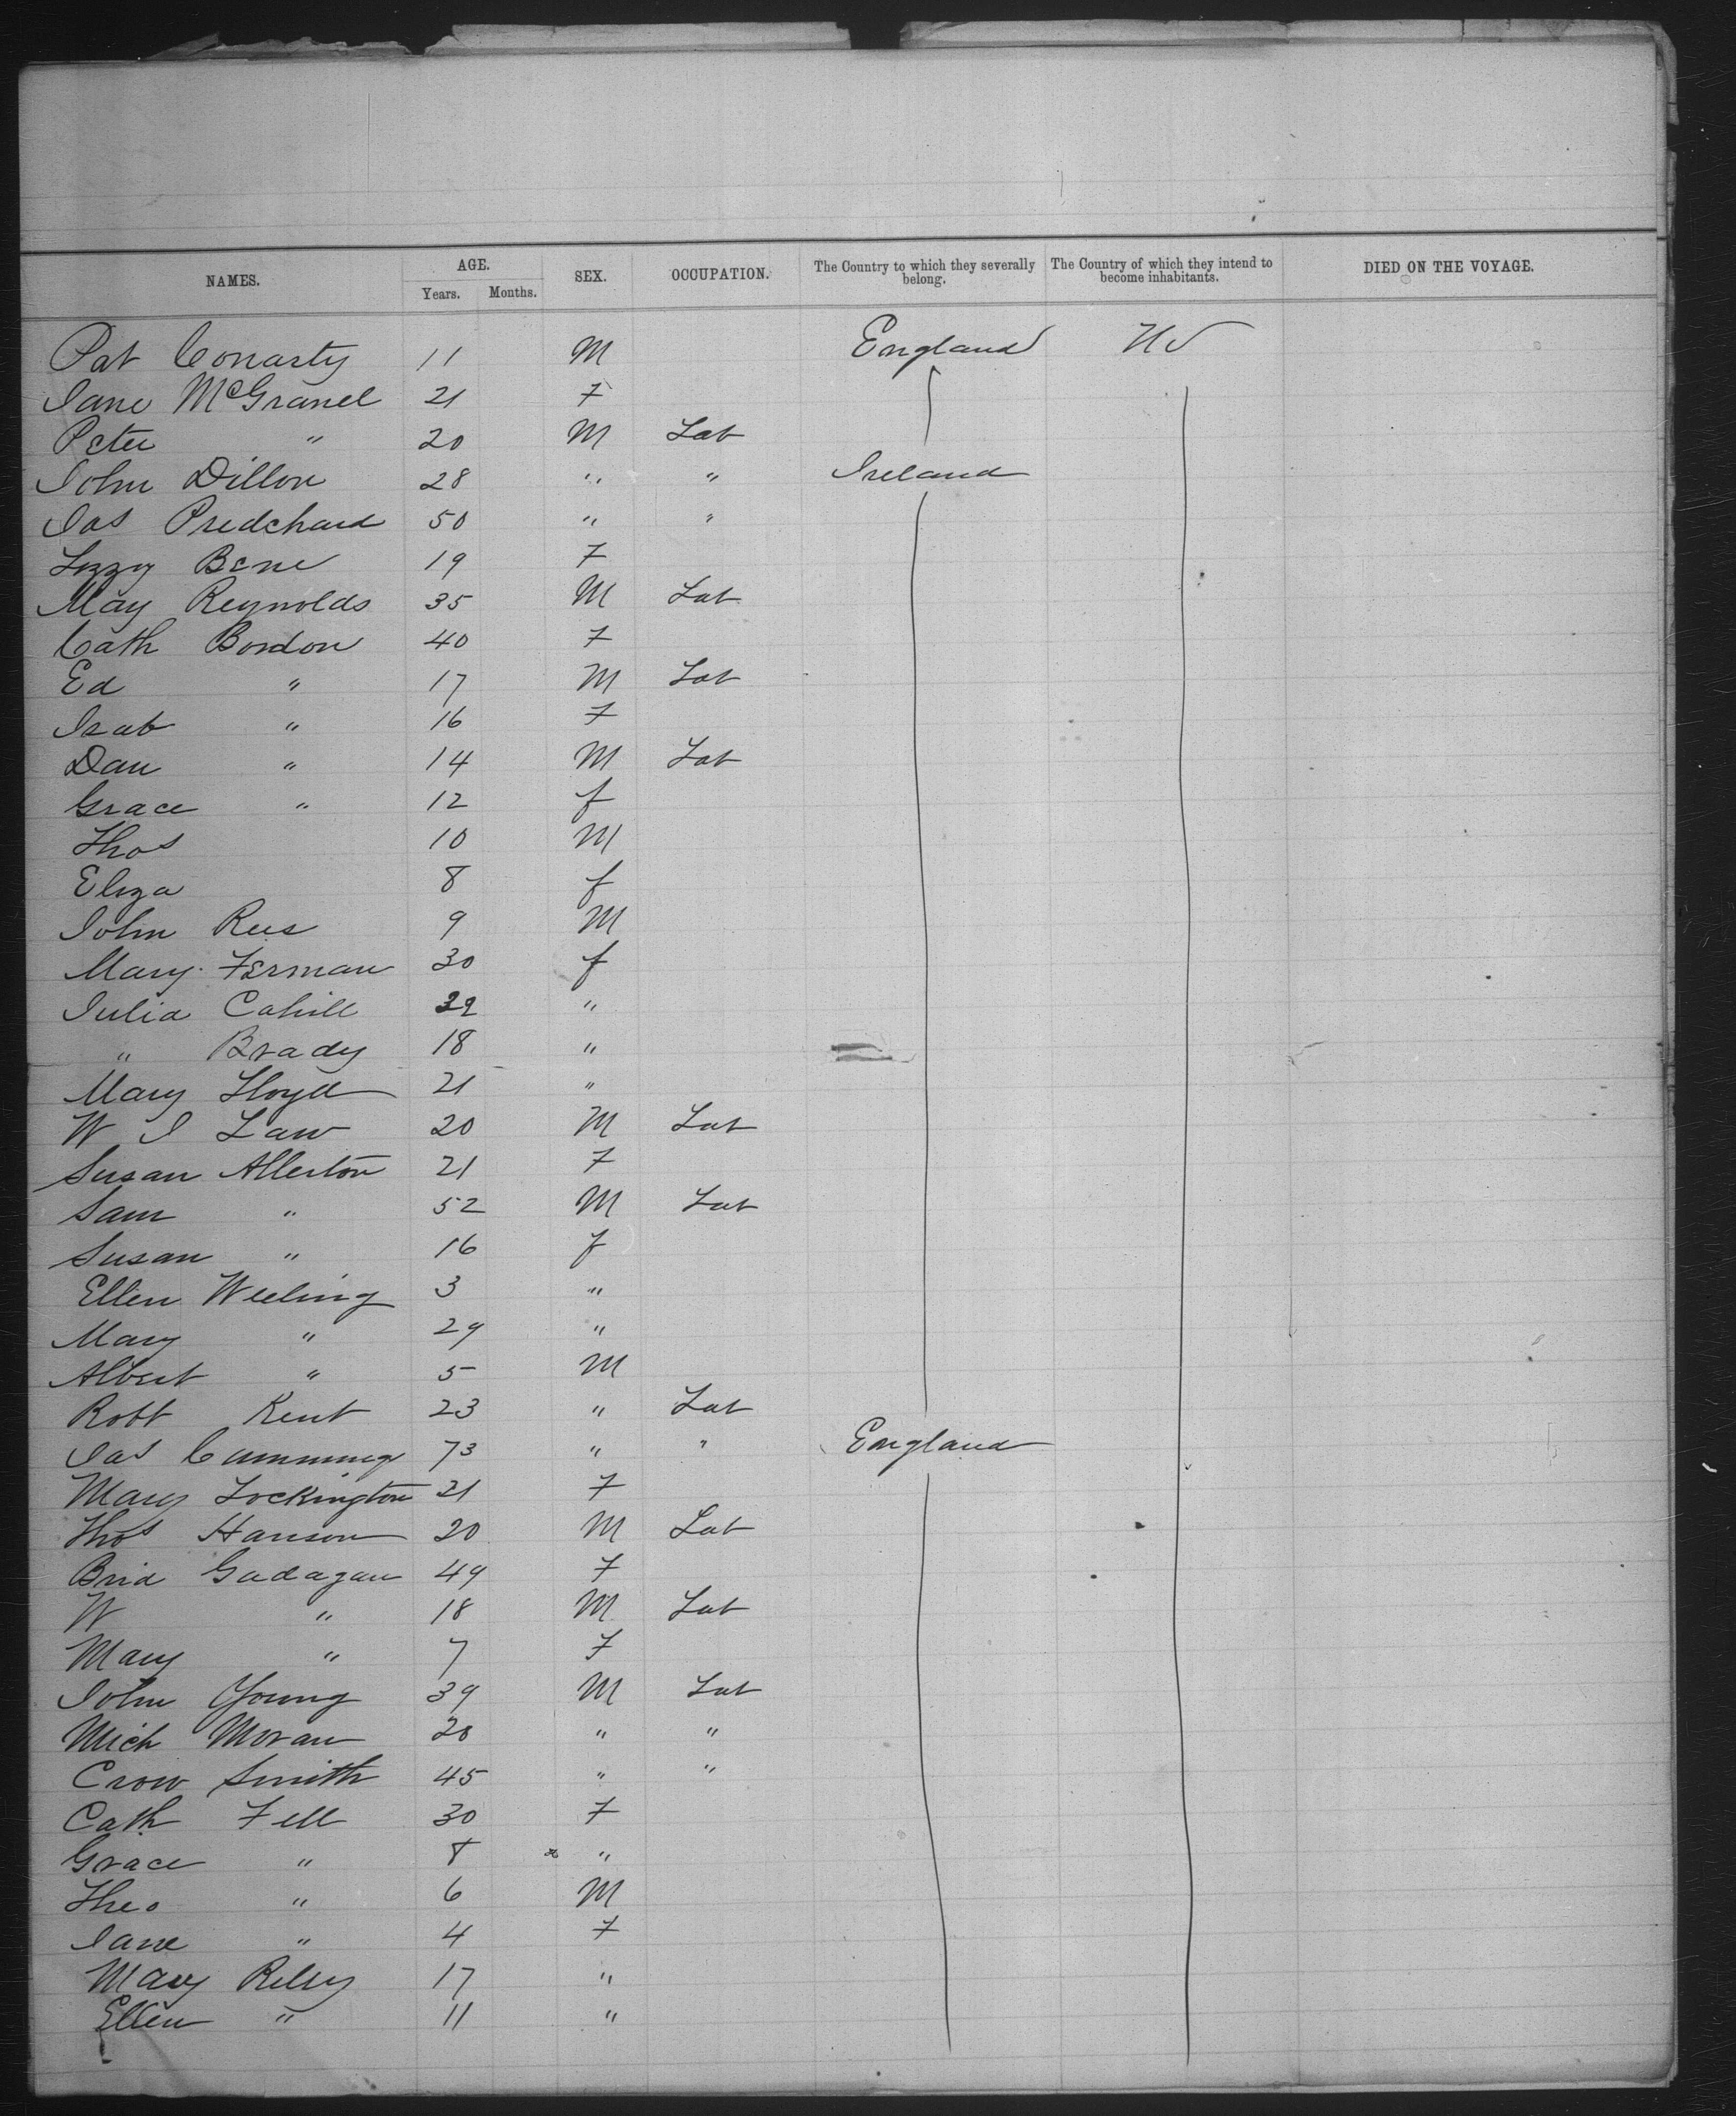 NAMES. AGE. SEX. OCCUPATION. The Country to which they severally belong. The Country of which they intend to become inhabitants. DIED ON THE VOYAGE.
Years. Months.
Pat Conarty 11 M England US
Jane McGranel 21 F
Peter " 20 M Lab
John Dillon 28 " " Ireland
Jas Predchard 50 " "
Lizzy Bene 19 F
May Reynolds 35 M Lab
Cath Bordon 40 F
Ed " 17 M Lab
Isab " 16 F
Dan " 14 M Lab
Grace " 12 f
Thos 10 M
Eliza 8 f
John Rees 9 M
Mary Ferman 30 f
Julia Cahill 32 "
" Brady 18 "
Mary Lloyd 21 "
W J Law 20 M Lab
Susan Allerton 21 F
Sam " 52 M Lab
Susan " 16 f
Ellen Weeling 3 "
Mary " 29 "
Albert " 5 M
Robt Kent 23 " Lab
Jas Cumming 73 " " England
Mary Lockington 21 F
Thos Hanson 20 M Lab
Brid Gadagan 49 F
W " 18 M Lab
Mary " 7 F
John Young 39 M Lab
Mich Moran 28 " "
Crow Smith 45 " "
Cath Fell 30 F
Grace " 8 "
Theo " 6 M
Jane " 4 F
Mary Relley 17 "
Ellen " 11 "